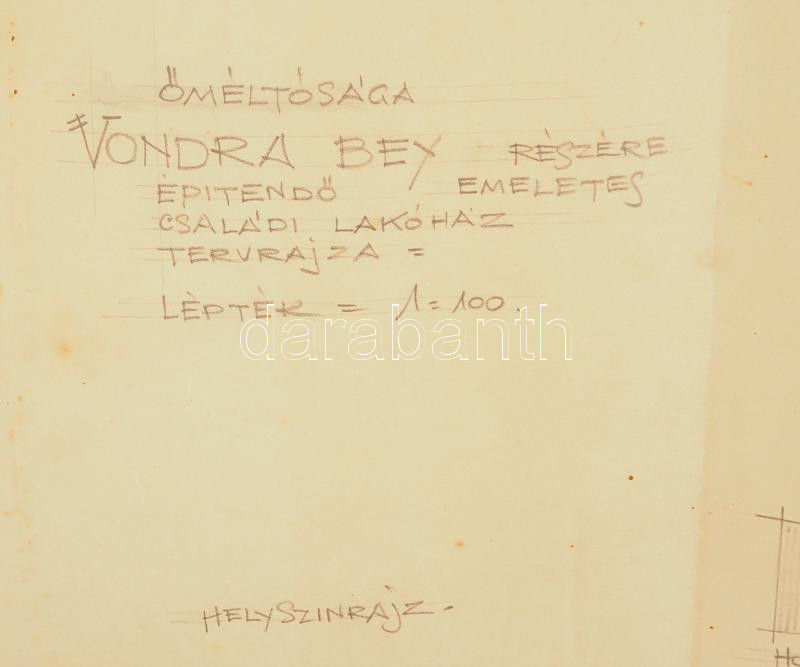 ŐMÉLTÓSÁGA
VONDRA BEY RÉSZÉRE
ÉPITENDŐ EMELETES
CSALÁDI LAKÓHÁZ
TERVRAJZA =
LÉPTÉK = 1=100.
darabanth
HELYSZINRAJZ-